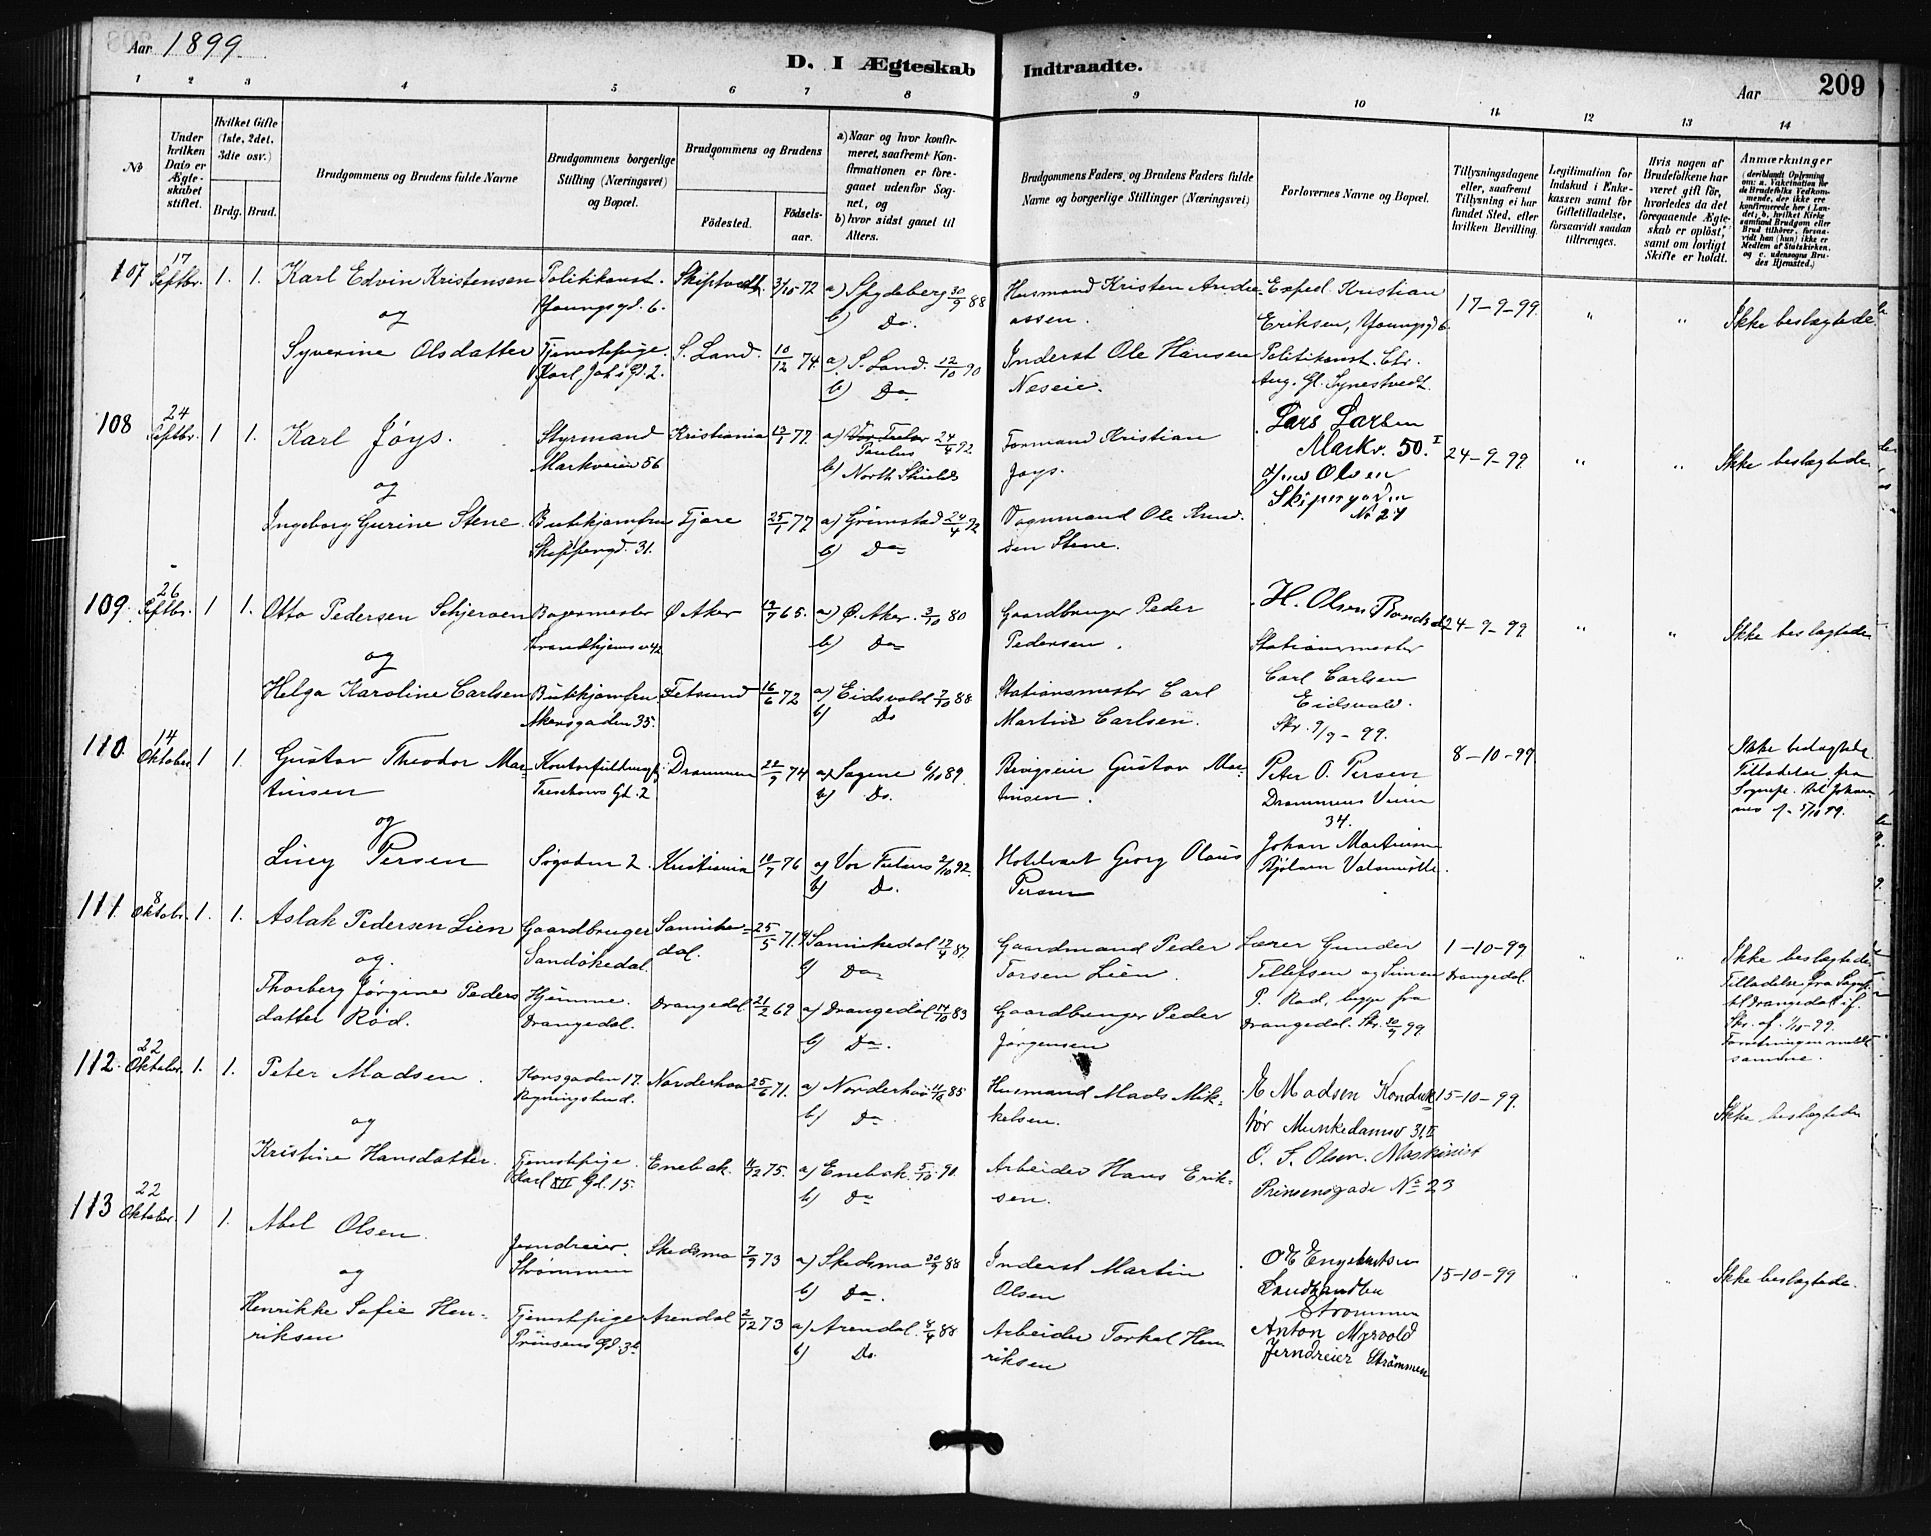 Aar 1899.
D. I Ægteskab Indtraadte.
Aar
209
1 2 3 4 5 6 7 8 9 10 11 12 13 14
No
Under hvilken Dato er Ægteskabet stiftet.
Hvilket Gifte (1ste, 2det, 3die osv.)
Brdg. Brud.
Brudgommens og Brudens fulde Navne
Brudgommens borgerlige Stilling (Næringsvei) og Bopæl.
Brudgommens og Brudens
Födested.
Födselsaar.
a) Naar og hvor konfirmeret, saafremt Konfirmationen er foregaaet udenfor Sognet, og
b) hvor sidst gaaet til Alters.
Brudgommens Faders, og Brudens Faders fulde Navne og borgerlige Stillinger (Næringsvei)
Forlovernes Navne og Bopæl.
Tillysningsdagene eller, saafremt Tillysning ei har fundet Sted, efter hvilken Bevilling.
Legitimation for Indskud i Enkekassen samt for Giftetilladelse, forsaavidt saadan tiltrænges.
Hvis nogen af Brudefolkene har været gift för, hvorledes da det foregaaende Ægteskab er oplöst, samt om lovligt Skifte er holdt.
Anmærkninger
107 17 Septbr. 1. 1. Karl Edvin Kristensen Politikonst. Youngsgd. 6. Skiptvedt. 3/10 72 a) Spydeberg 30/9 88 b) Do. Husmand Kristen Andreassen. Exped. Kristian Eriksen, Youngsgd 6. 17-9-99 " " Ikke beslægtede
og
Syverine Olsdatter Tjenestepige. Karl Joh's Gd. 2. S. Land. 10/12 74. a) S. Land. 12/10 90 b) Do Inderst Ole Hansen Neseie. Politikonst. Chr. Aug. Gl. Synestvedt.
108 24 Septbr. 1 1. Karl Jöys. Styrmand Markveien 56 Kristiania 77. a) Paulus 24/4 92 b) North Shields Formand Kristian Joys. Lars Larsen Markv. 50. I 24-9-99 " " Ikke beslægtede
og
Ingeborg Gurine Stene. Butikjomfru Skippergd. 31. Fjære 25/1 77 a) Grimstad 24/4 92 b) Do Vognmand Ole Knudsen Stene. Olsen Skipergaden No 27
109. 26 Septbr. 1 1. Otto Pedersen Schjerven Bagermester Trondhjemsv 42 Ø Aker 65. a) Ø. Aker. 3/10 80 b) Do Gaardbruger Peder Pedersen. H. Olsen 24-9-99 " " Ikke beslægtede
og
Helga Karoline Carlsen Butikjomfru Akersgaden 35. Fetsund 16/6 72 a) Eidsvold 7/10 88 b) Do Stationsmester Carl Martin Carlsen. Stationsmester Carl Carlsen Eidsvold. Skr. 9/9-99.
110. 14 Oktober 1 1. Gustav Theodor Martinsen Treschows Gd. 2 Drammen 22/9 74 a) Sagene 6/10 89. b) Do. Gustav Martinsen. Peter O. Persen Drammens Veien 34. 8-10-99 Ikke beslægtede Tilladelse fra Sognepr. til Johannes f. 5/10 99.
og
Liney Persen Søgaden 2. Kristiania 10/7 76 a) Vor Frelsers 2/10 92. b) Do. Hotelvært Georg Olaus Persen Johan Martinsen Bjölsen Valsemölle.
111. 8 Oktobr. 1. 1. Aslak Pedersen Lien Gaardbruger Sandökedal. Sannikedal. 25/5 71. a) Sannikedal 17/4 87. b) Do Gaardmand Peder Torsen Lien. Lærer Gunder Tellefsen og Simen P. Rød, begge fra Drangedal. Skr. 30/9 99. 1-10-99 Drangedal. Ikke beslægtede Tilladelse fra Sognepr. til Drangedal if. Skr. af 1/10-99. Forretningen meldt samme.
og.
Thorberg Jørgine Pedersdatter Rød. Hjemme. Drangedal. Drangedal 21/2 69 a) Drangedal 14/10 83 b) Do. Gaardbruger Peder Jørgensen
112. 22 Oktober. 1. 1. Peter Madsen. Korsgaden 17. Bygningssnd. Norderhov 25/6 71. a) Norderhov 11/10 85 b) Do. Husmand Mads Mikkelsen. E Madsen Konduktör Munkedamsv 31 II 15-10-99. Ikke beslægtede
og
Kristine Hansdatter. Tjenestepige. Karl XII Gd. 15. Enebak. 11/12 75. a) Enebak. 5/10 90. b) Do Arbeider Hans Eriksen. O. S. Olsen. Maskinist Prinsensgade No 23
113 22 Oktober. 1 1. Abel Olsen. Jerndreier. Strømmen Skedsmo 7/9 73 a) Skedsmo 30/9 88 b) Do. Inderst Martin Olsen O E Engebretsen Landhandler Strømmen 15-10-99 Ikke beslægtede.
og
Henrikke Sofie Henriksen Tjenestepige Prinsens Gd. 3b Arendal 2/12 73 a) Arendal. 8/4 88 b) Do. Arbeider Torkel Henriksen Anton Myrvold Jerndreier Strömmen